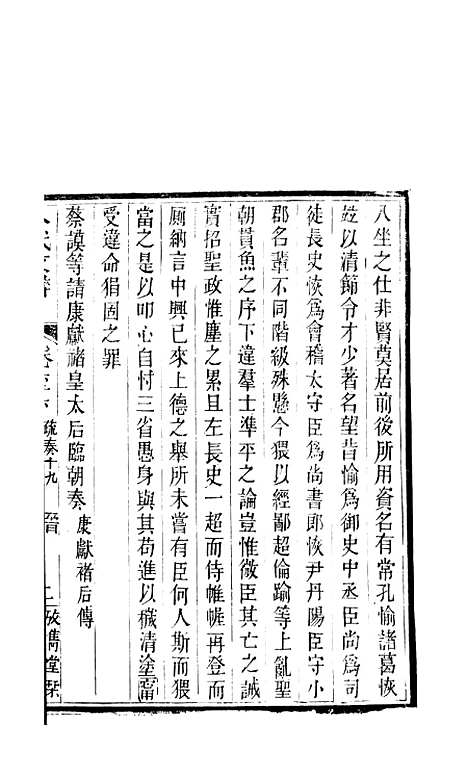 八坐之仕非賢莫居前後所用資名有常孔愉諸葛恢
竝以清節令才少著名望昔愉爲御史中丞臣尚爲司
徒長史恢爲會稽太守臣爲尚書郎恢尹丹陽臣守小
郡名輩不同階級殊懸今猥以輕鄙超倫踰等上亂聖
朝貫魚之序下違羣士準平之論豈惟微臣其亡之誠
實招聖政惟塵之累且左長史一超而侍帷幄再登而
厠納言中興已來上德之舉所未嘗有臣何人斯而猥
當之是以叩心自忖三省愚身與其苟進以穢清塗甯
受違命狷固之罪
蔡謨等請康獻禇皇太后臨朝奏 康獻禇后傳
疏奏十九 晉
攸雋堂栞